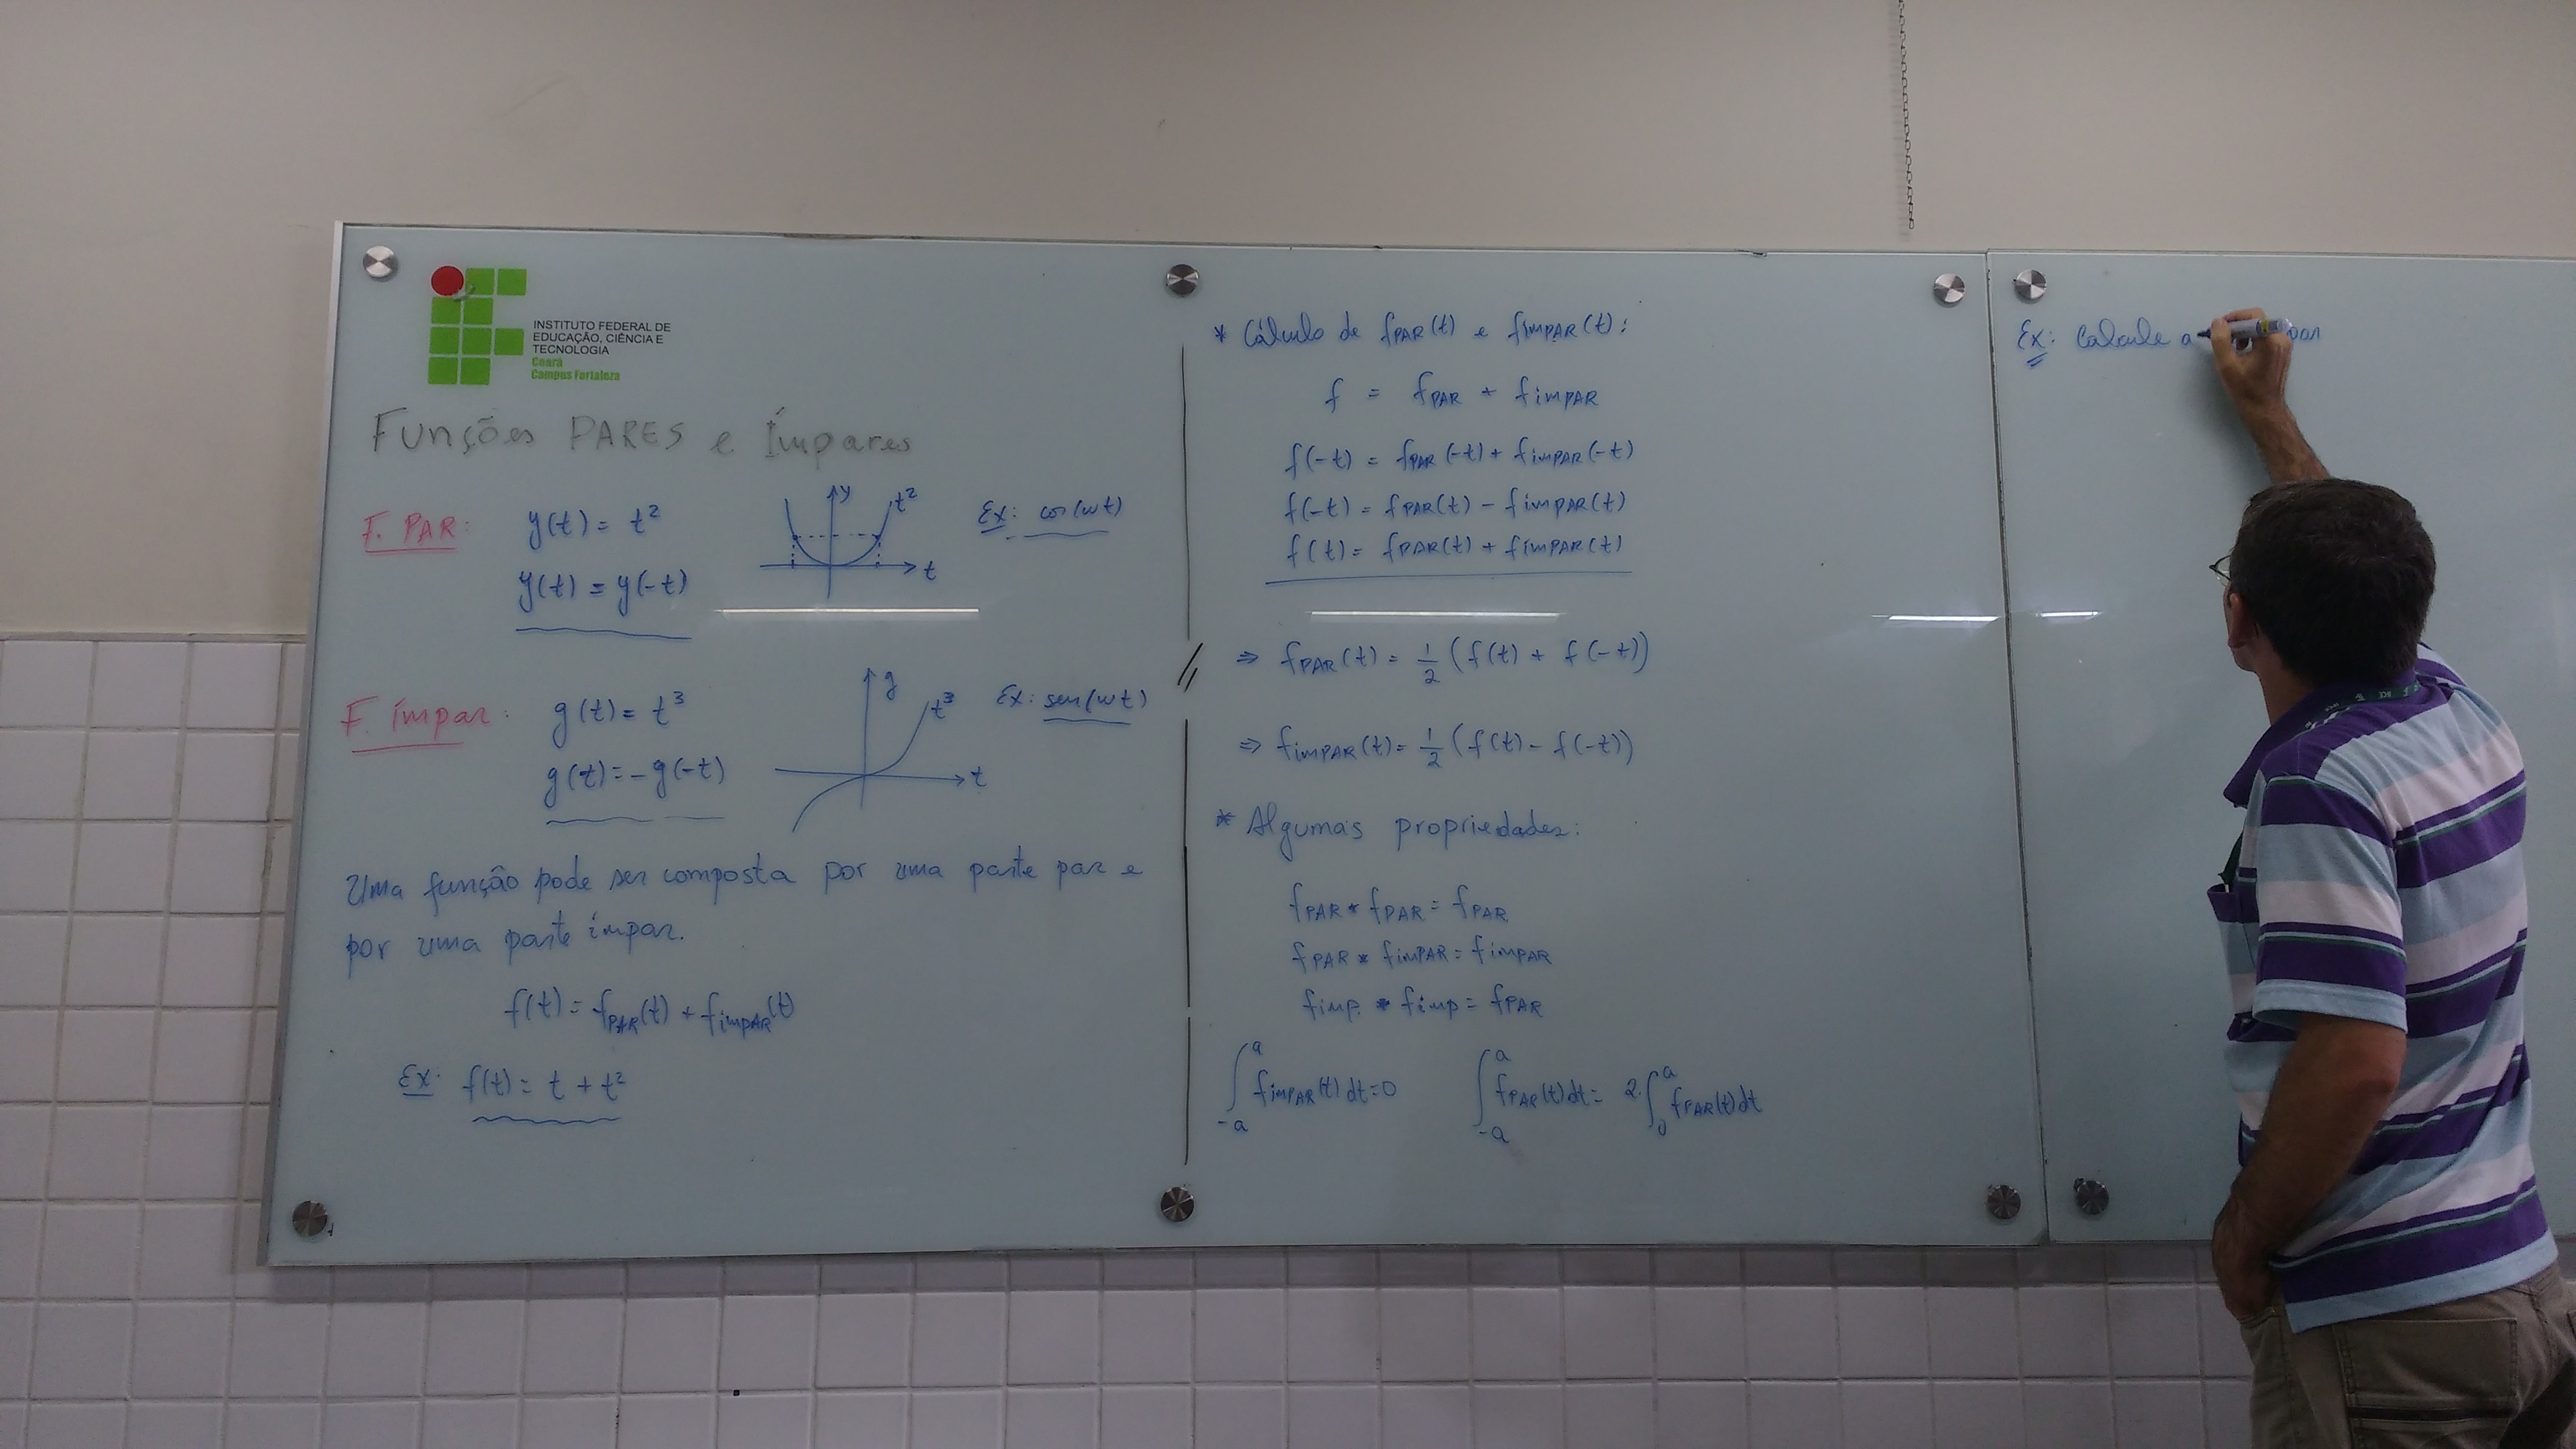 INSTITUTO FEDERAL DE
EDUCAÇÃO, CIÊNCIA E
TECNOLOGIA
Ceará
Campus Fortaleza
Funções PARES e Ímpares
F. PAR: y(t) = t²
y(t) = y(-t)
y
t²
t
Ex: cos(wt)
F. ímpar: g(t) = t³
g(t) = -g(-t)
g
t³
t
Ex: sen(wt)
Uma função pode ser composta por uma parte par e
por uma parte ímpar.
f(t) = fPAR(t) + fímPAR(t)
Ex: f(t) = t + t²
* Cálculo de fPAR(t) e fímpar(t):
f = fPAR + fímPAR
f(-t) = fPAR(-t) + fímPAR(-t)
f(-t) = fPAR(t) - fímpAR(t)
f(t) = fPAR(t) + fímPAR(t)
⇒ fPAR(t) = 1/2 (f(t) + f(-t))
⇒ fímPAR(t) = 1/2 (f(t) - f(-t))
* Algumas propriedades:
fPAR * fPAR = fPAR
fPAR * fimPAR = fimPAR
fimp. * fimp = fPAR
∫₋ₐᵃ fímPAR(t) dt = 0
∫₋ₐᵃ fPAR(t) dt = 2.∫₀ᵃ fPAR(t) dt
Ex: Calcule a par